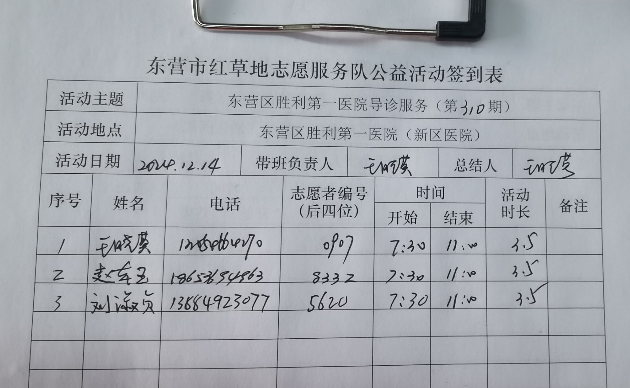 东营市红草地志愿服务队公益活动签到表
活动主题 东营区胜利第一医院导诊服务（第310期）
活动地点 东营区胜利第一医院（新区医院）
活动日期 2024.12.14 带班负责人 王晓漠 总结人 王晓漠
序号 姓名 电话 志愿者编号（后四位） 时间 开始 结束 活动时长 备注
1 王晓漠 0907 7:30 11:00 3.5
2 8332 7:30 11:00 3.5
3 刘淑贞 13884923077 5620 7:30 11:00 3.5